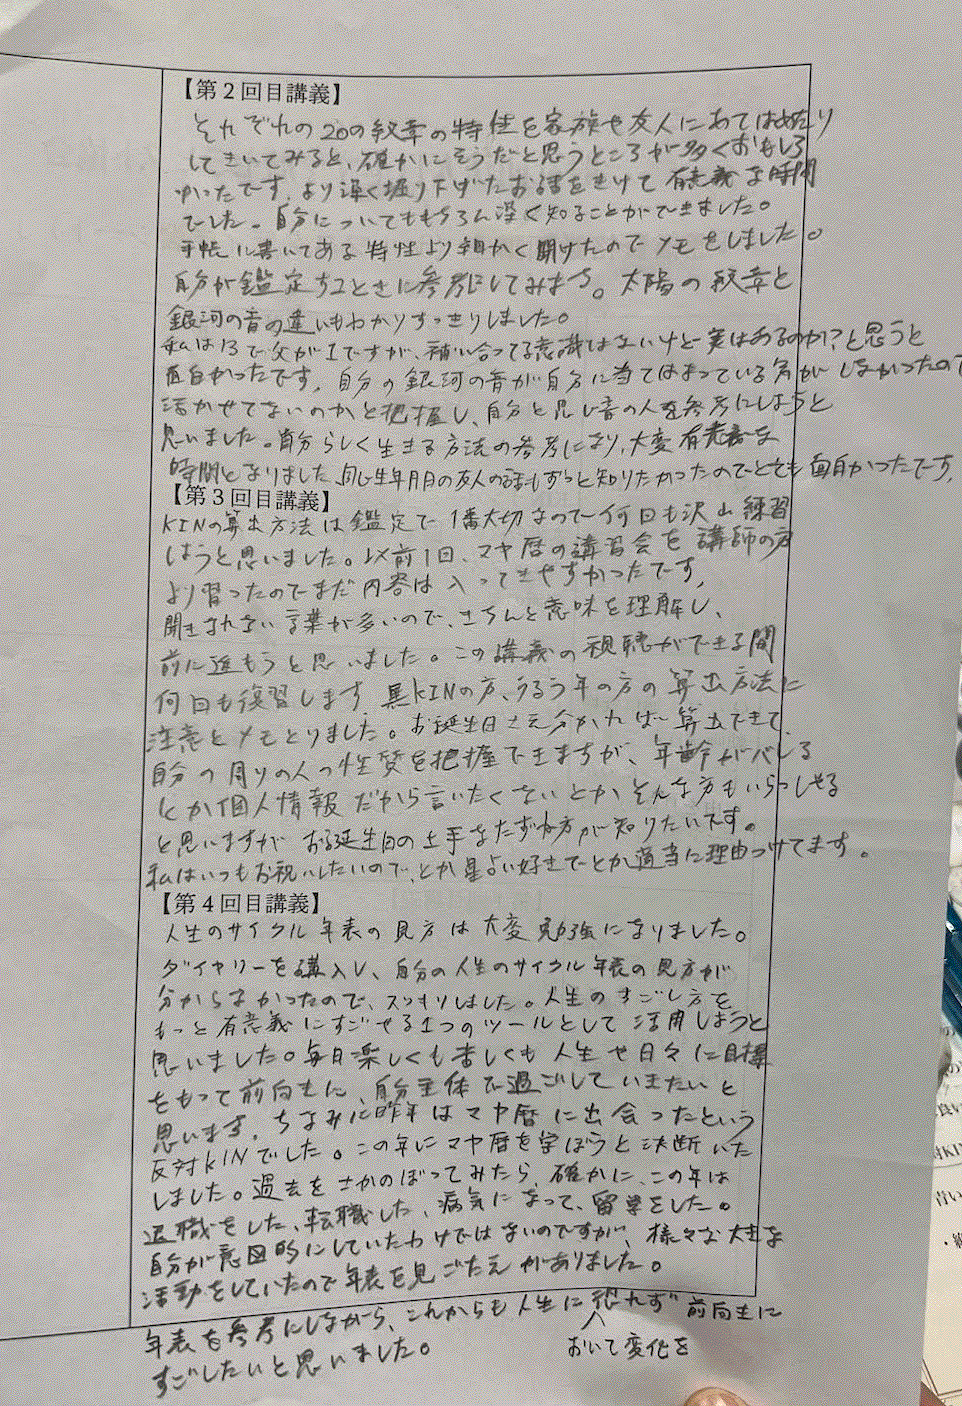 【第2回目講義】
それぞれの20の紋章の特性を家族や友人にあてはめたり
してきいてみると、確かにそうだと思うところが多くおもしろ
かったです。より深く掘り下げたお話をきけて有意義な時間
でした。自分についてももちろん深く知ることができました。
手帳に書いてある特性より細かく聞けたのでメモをしました。
自分が鑑定するときに参考にしてみます。太陽の紋章と
銀河の音の違いもわかりすっきりしました。
私は13で父が1ですが、補い合ってる意識はないけど実はあるのか?と思うと
面白かったです。自分の銀河の音が自分に当てはまっている気がしなかったので
活かせてないのかと把握し、自分と同じ音の人を参考にしようと
思いました。自分らしく生きる方法の参考になり、大変有意義な
時間となりました。同じ生年月日の友人の話もずっと知りたかったのでとても面白かったです。
【第3回目講義】
KINの算出方法は鑑定で1番大切なので何回も沢山練習
しようと思いました。以前1回、マヤ暦の講習会を講師の方
より習ったのでまだ内容は入ってきやすかったです。
聞きなれない言葉が多いので、きちんと意味を理解し、
前に進もうと思いました。この講義の視聴ができる間
何回も復習します。黒KINの方、うるう年の方の算出方法に
注意とメモとりました。お誕生日さえ分かれば算出できて
自分の周りの人の性質を把握できますが、年齢がバレる
とか個人情報だから言いたくないとかそんな方もいらっしゃる
と思いますがお誕生日の上手なたずね方が知りたいです。
私はいつもお祝いしたいので、とか星占い好きでとか適当に理由つけてます。
【第4回目講義】
人生のサイクル年表の見方は大変勉強になりました。
ダイヤリーを購入し、自分の人生のサイクル年表の見方が
分からなかったので、スッキリしました。人生のすごし方を
もっと有意義にすごせる1つのツールとして活用しようと
思いました。毎日楽しくも苦しくも人生や日々に目標
をもって前向きに、自分主体で過ごしていきたいと
思います。ちなみに昨年はマヤ暦に出会ったという
反対KINでした。この年にマヤ暦を学ぼうと決断いた
しました。過去をさかのぼってみたら、確かに、この年は
退職をした、転職した、病気になって、留学をした。
自分が意図的にしていたわけではないのですが、様々な大きな
活動をしていたので年表を見ごたえがありました。
年表を参考にしながら、これからも人生に恐れず前向きに
おいて変化を
すごしたいと思いました。